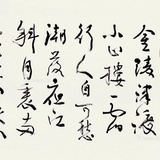 金陵津渡
小山樓一宿
行人自可愁
潮落夜江
斜月裏兩